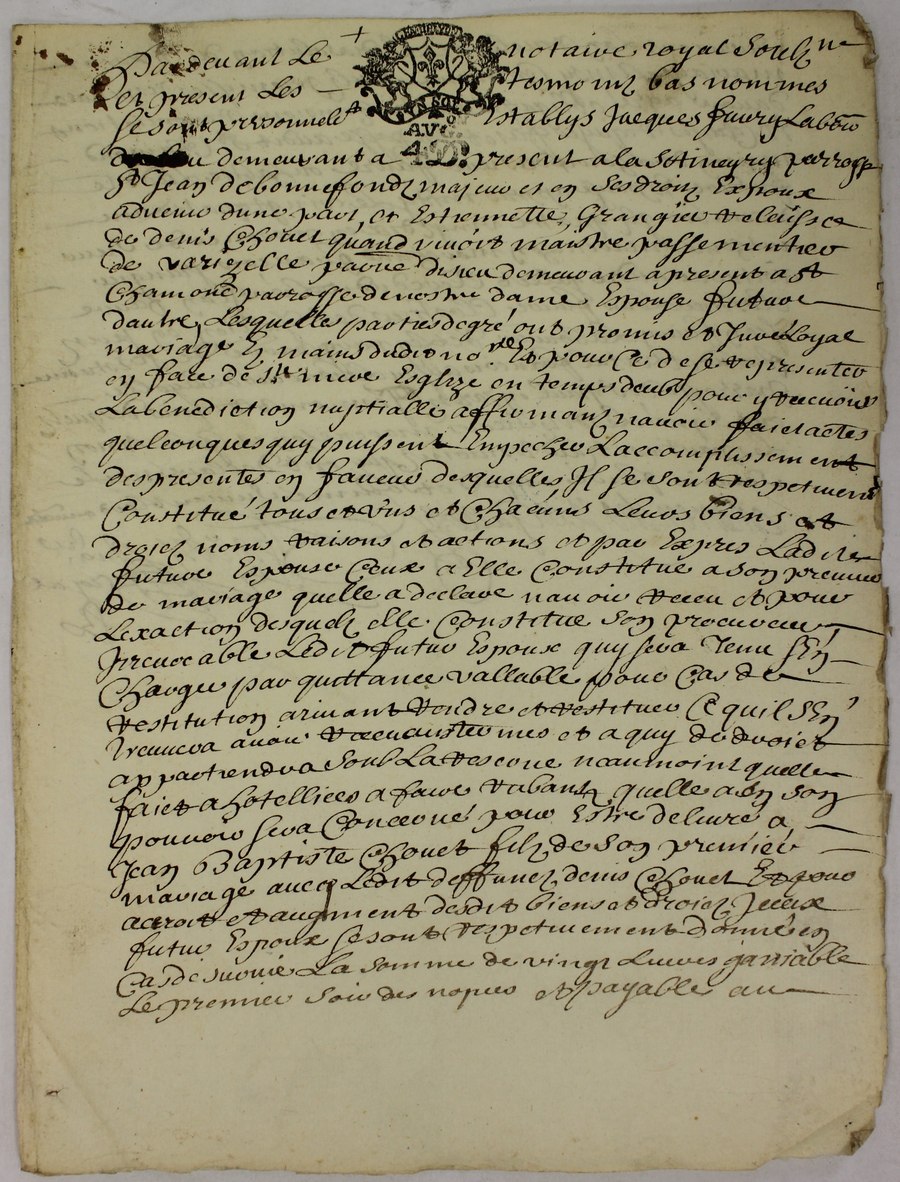 Pardevant Le notaire royal Soubz.ne
et present Les tesmoins bas nommes
se sont personnelt Establys Jacques faury Labor
AV
4 D.
demeurant a present a la Sotineyry parrosse
St Jean de bonnefondz majeur et en Ses droitz Expoux
advenir dune part, et Estiennette Grangier velaissee
de denis Chouet quand vivoit maistre passementier
de varizelle parroe disieu demeurant a present a St
Chamond parrosse de nostre dame Espouse future
dautre, Lesquelle parties de gré ont promis et Juré Loyal
mariage Ez mains dudit nore Et pour Ce de se representer
en face de Ste mere Esglize en temps deub pour y recevoir
La benediction nuptialle affirmant navoir faict actes
quelconques quy puissent Empecher Laccomplissement
des presentes en faveur desquelles Jl se sont respetivemt
Constitué tous et uns et Chacuns Leurs biens et
droictz noms raisons et actions et par Expres Ladite
future Espouse Ceux a Elle Constitué a son premier
de mariage quelle a declare navoir receu et pour
Lexaction desquelz elle Constitue son procureur
Jrrevocable Ledit futur Espoux quy sera Tenu sen
Charger par quittance vallable pour Cas de
restitution arrivant rendre et restituer Ce quil sen
treuvera avoir receu aux termes et a quy de droict
appartiendra Soub La reserve neanmoint quelle
faict a hotellices a faire rubantz quelle a En son
pouvoir sera Concervé pour Estre delivré a
Jean Baptiste Chouet filz de son premier
mariage avecq Ledit deffunct denis Chouet Et pour
acroit et augment desdit biens et droictz Jceux
futur Espoux se sont respetivement donné en
Cas de survie La somme de vingt Livres ganiable
Le premier soir des nopces et payable au